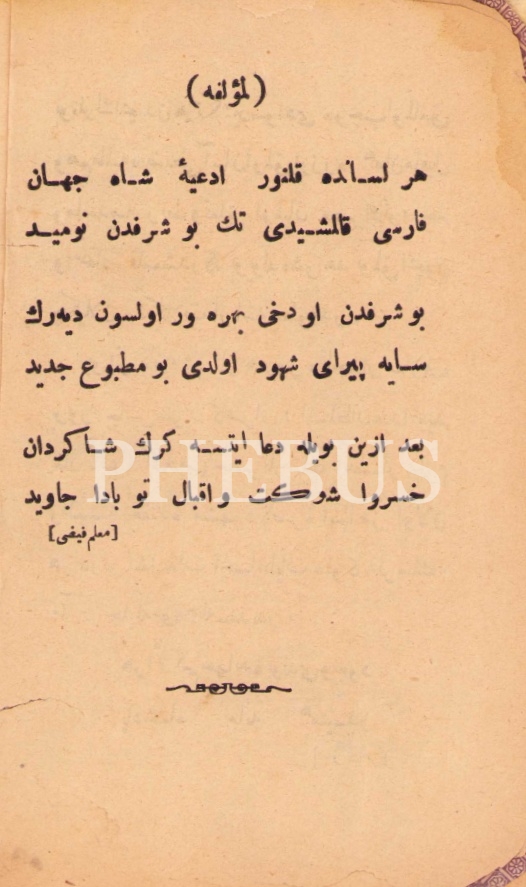 (لمؤلفه)
هر لسانده قلنور ادعیۀ شاه جهان
فارسی قالمشیدی تك بو شرفدن نومید
بو شرفدن او دخی بهره ور اولسون دیه‌رك
سایه پیرای شهود اولدی بو مطبوع جدید
بعد ازین بویله دعا ایتسه كرك شاكردان
خسروا شوكت و اقبال تو بادا جاوید
[معلم فیضی]
PHEBUS